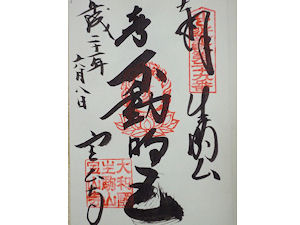 奉拝 生駒山
不動明王
平成二十二年
六月八日
宝山寺
大和國
生駒山
宝山寺